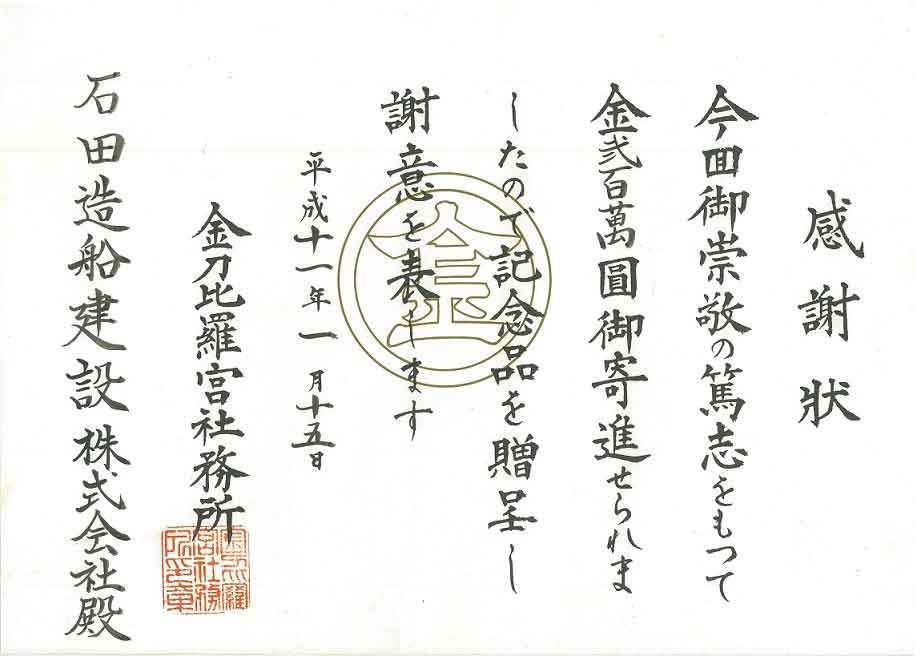 感謝狀
今回御崇敬の篤志をもつて
金弐百萬圓御寄進せられま
したので記念品を贈呈し
謝意を表します
平成十一年一月十五日
金刀比羅宮社務所
石田造船建設株式会社殿
金